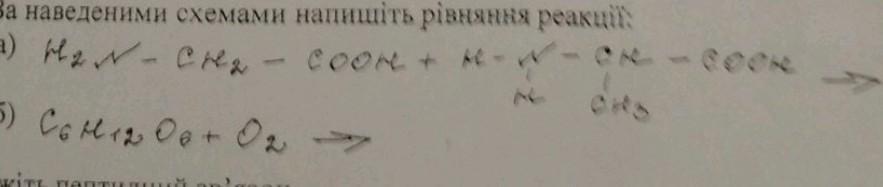 За наведеними схемами напишіть рівняння реакції:
а) H₂N - CH₂ - COOH + H - N - CH - COOH →
H CH₃
б) C₆H₁₂O₆ + O₂ →